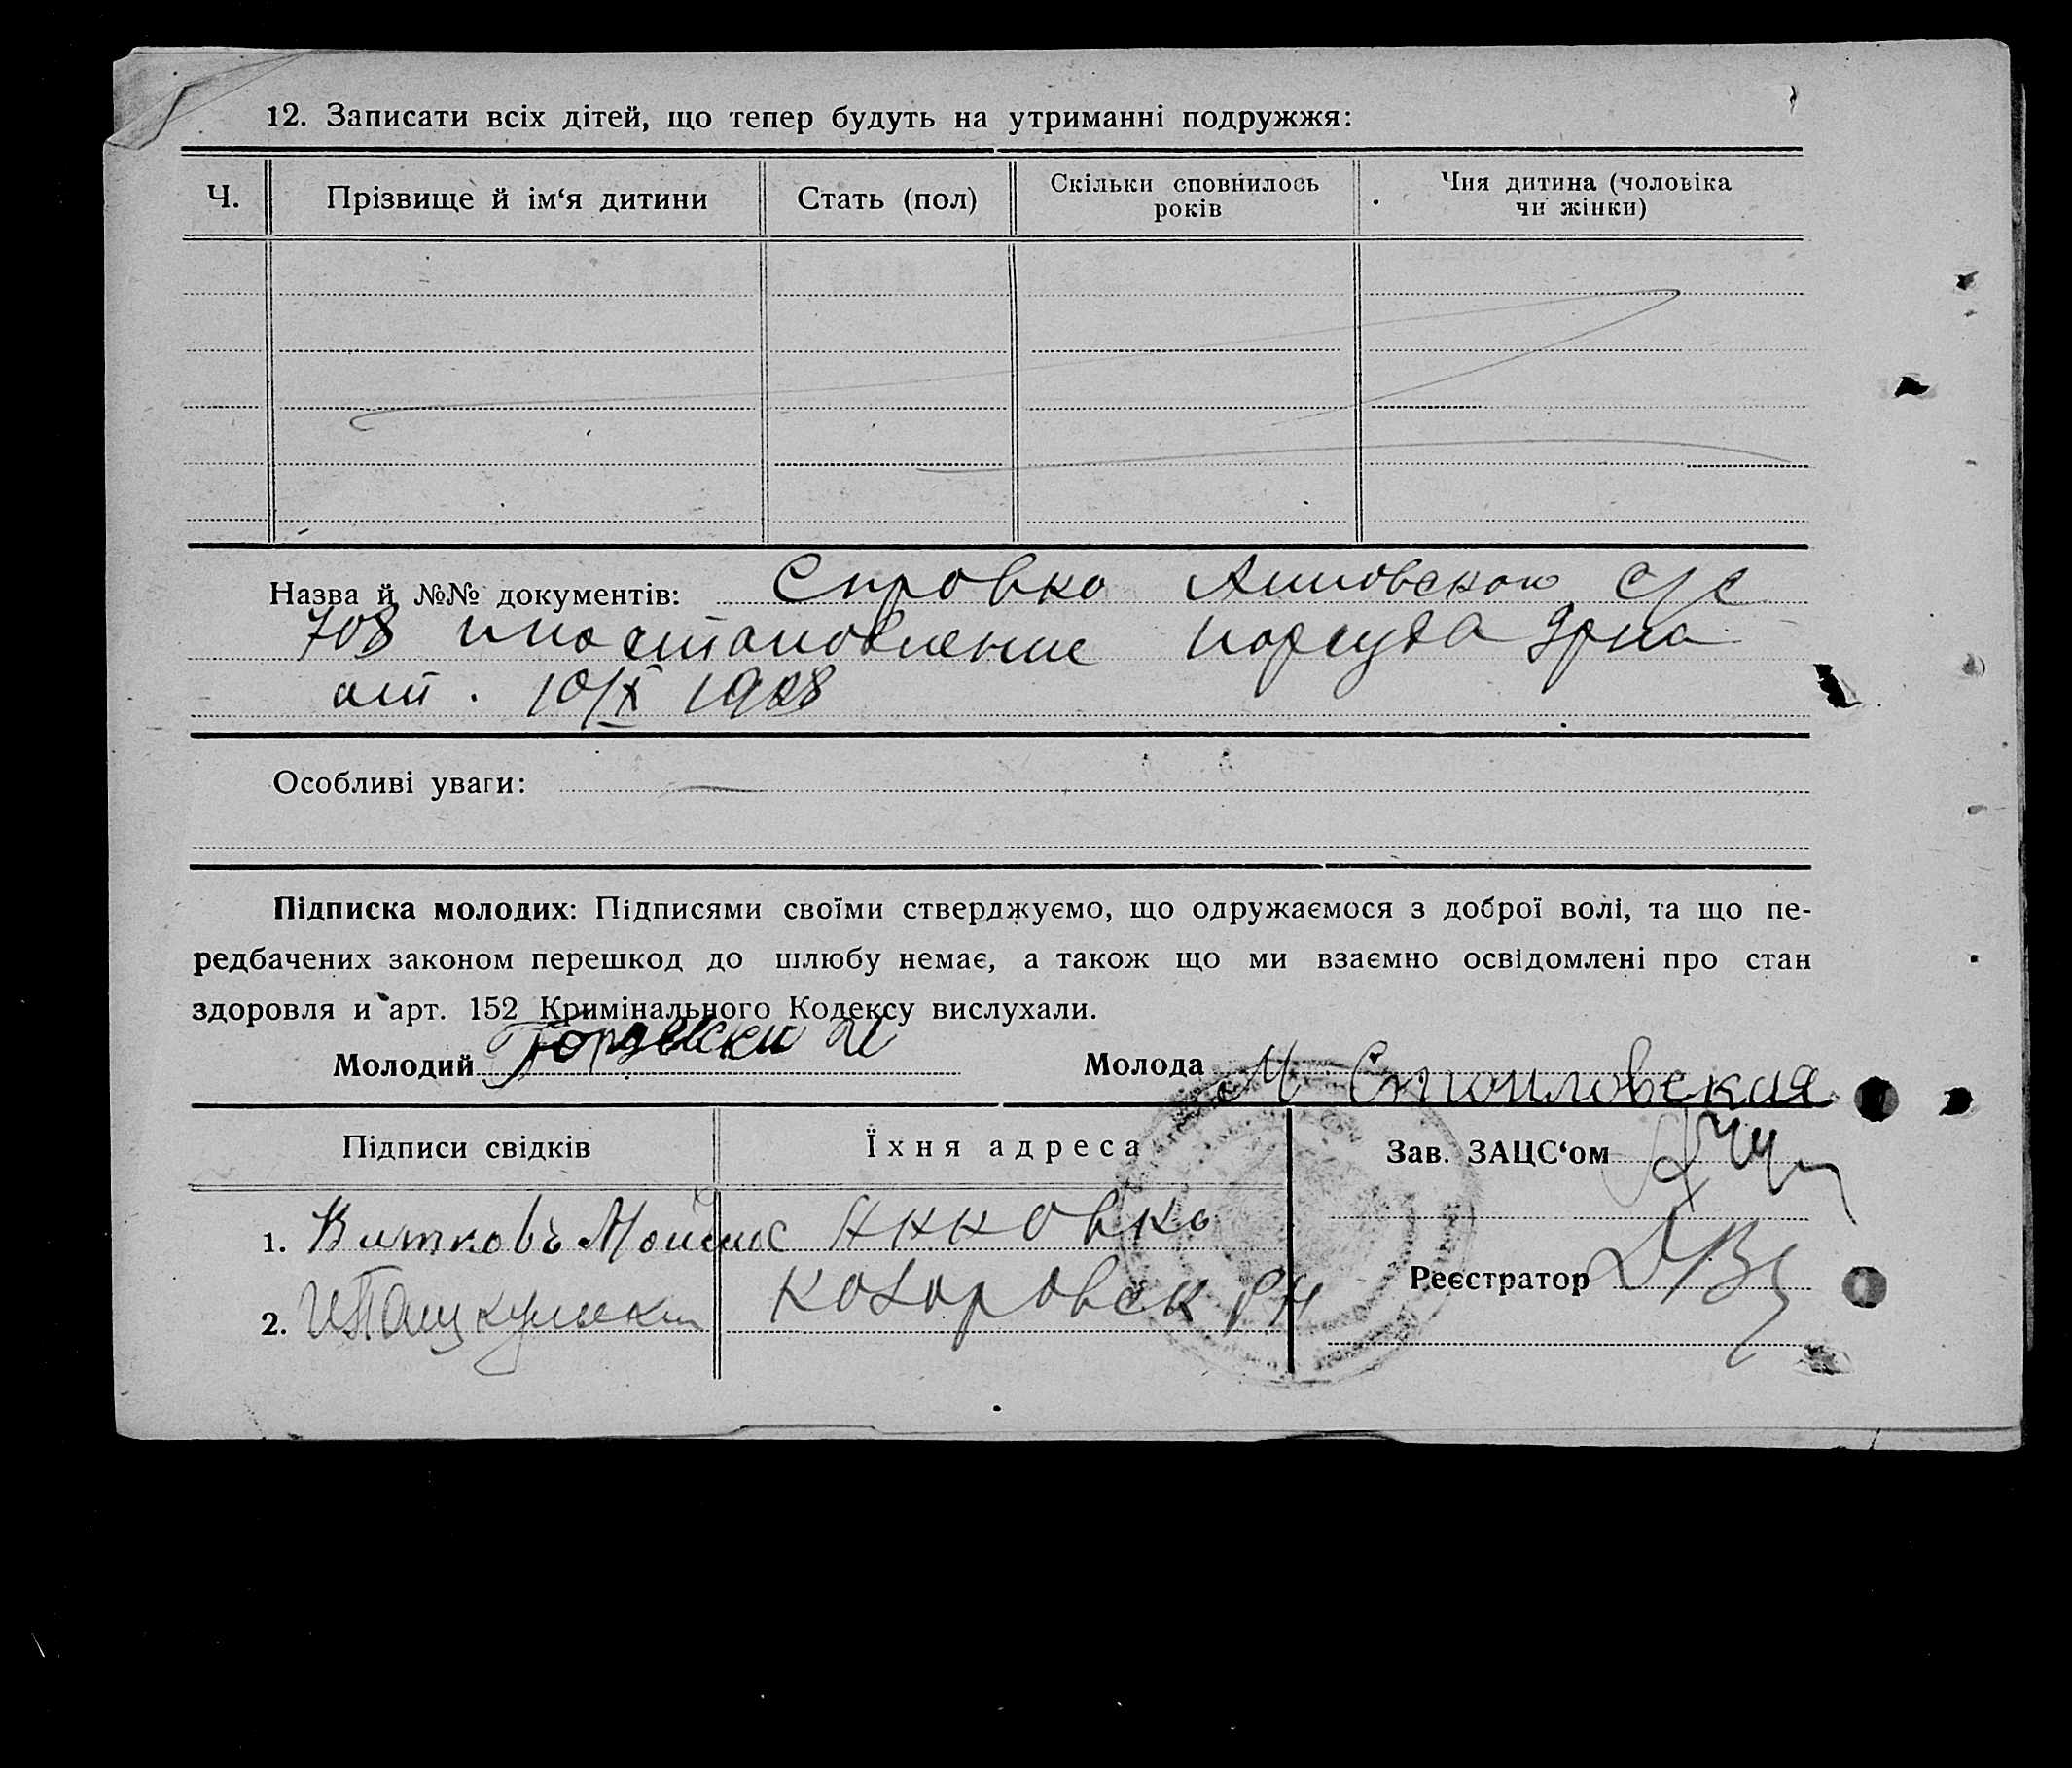 12. Записати всіх дітей, що тепер будуть на утриманні подружжя:
Ч.
Прізвище й ім‘я дитини
Стать (пол)
Скільки сповнилось
років
Чия дитина (чоловіка
чи жінки)
Назва й №№ документів: Справка с/с
708 и постановление нарсуда
от. 10/X 1928
Особливі уваги:
Підписка молодих: Підписями своїми стверджуємо, що одружаємося з доброї волі, та що пе-
редбачених законом перешкод до шлюбу немає, а також що ми взаємно освідомлені про стан
здоровля и арт. 152 Кримінального Кодексу вислухали.
Молодий
Молода М
Підписи свідків
Їхня адреса
Зав. ЗАЦС‘ом
1. Витковъ
Реєстратор
2.